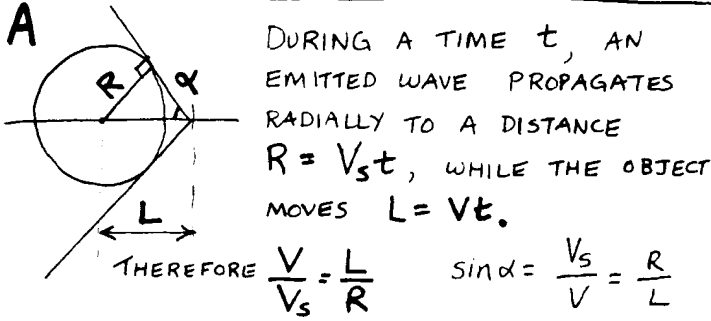 A
R
α
L
DURING A TIME t, AN
EMITTED WAVE PROPAGATES
RADIALLY TO A DISTANCE
R = Vₛt, WHILE THE OBJECT
MOVES L = Vt.
THEREFORE V/Vₛ = L/R sin α = Vₛ/V = R/L